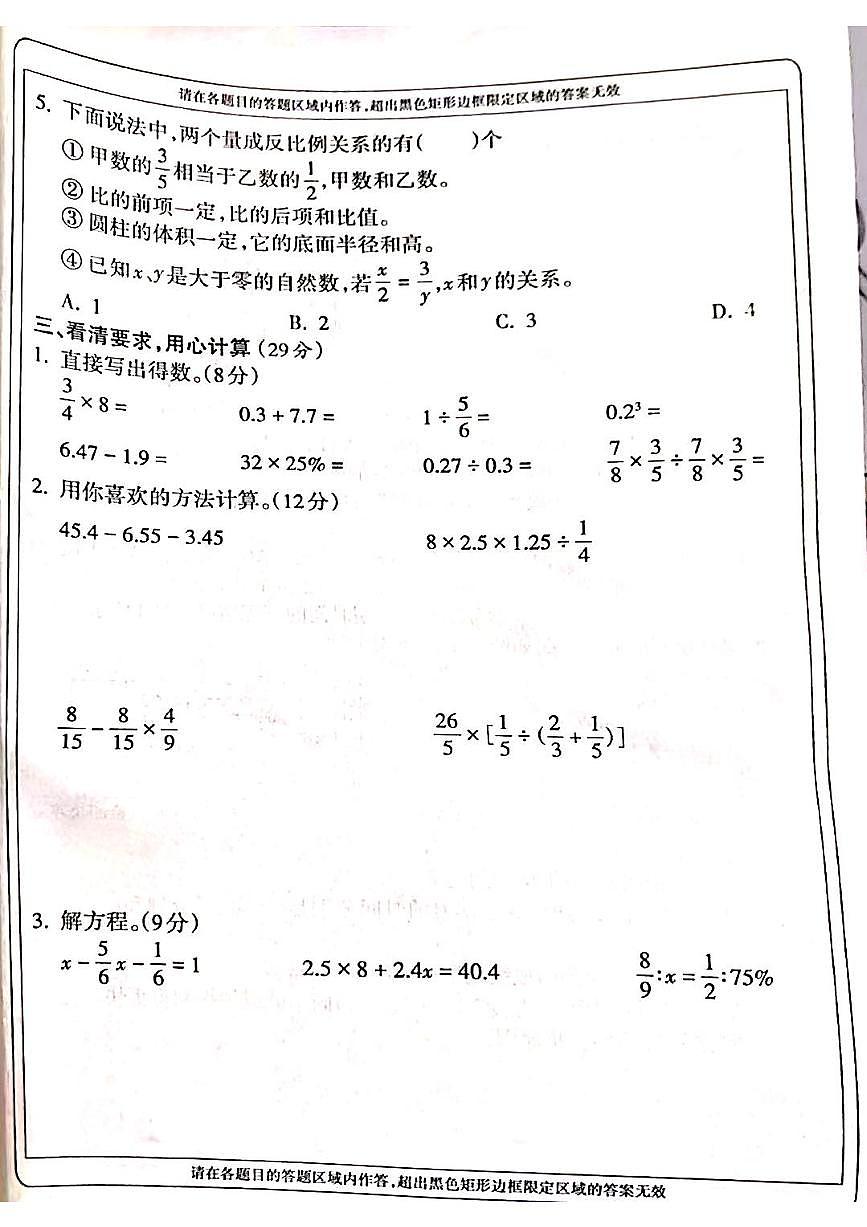 请在各题目的答题区域内作答,超出黑色矩形边框限定区域的答案无效
5. 下面说法中,两个量成反比例关系的有(　　)个
① 甲数的3/5相当于乙数的1/2,甲数和乙数。
② 比的前项一定,比的后项和比值。
③ 圆柱的体积一定,它的底面半径和高。
④ 已知x、y是大于零的自然数,若x/2 = 3/y,x和y的关系。
A. 1　B. 2　C. 3　D. 4
三、看清要求,用心计算(29分)
1. 直接写出得数。(8分)
3/4 × 8 =　0.3 + 7.7 =　1 ÷ 5/6 =　0.2³ =
6.47 − 1.9 =　32 × 25% =　0.27 ÷ 0.3 =　7/8 × 3/5 ÷ 7/8 × 3/5 =
2. 用你喜欢的方法计算。(12分)
45.4 − 6.55 − 3.45　8 × 2.5 × 1.25 ÷ 1/4
8/15 − 8/15 × 4/9　26/5 × [1/5 ÷ (2/3 + 1/5)]
3. 解方程。(9分)
x − 5/6x − 1/6 = 1　2.5 × 8 + 2.4x = 40.4　8/9 : x = 1/2 : 75%
请在各题目的答题区域内作答,超出黑色矩形边框限定区域的答案无效